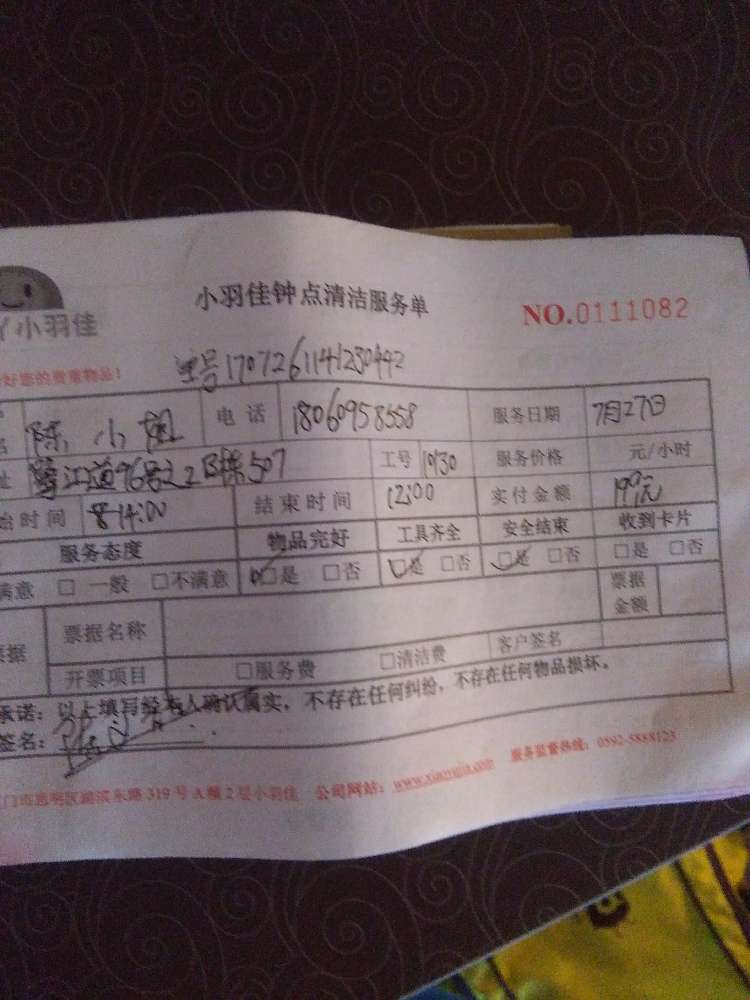 小羽佳钟点清洁服务单
NO.0111082
小羽佳
好您的贵重物品!
单号1707261141230442
陈小姐 电话 18060958558 服务日期 7月27日
江道96号之2B栋507 工号 10130 服务价格 元/小时
始时间 8:14:00 结束时间 12:00 实付金额 199元
服务态度 物品完好 工具齐全 安全结束 收到卡片
满意 □ 一般 □不满意 □是 □否 □是 □否 □是 □否 □是 □否
票据 票据名称 票据金额
开票项目 □服务费 □清洁费 客户签名
承诺：以上填写经本人确认属实，不存在任何纠纷，不存在任何物品损坏。
签名：
门市思明区湖滨东路319号A幢2层小羽佳 公司网站：www.xiaoyujia.com 服务监督热线：0592-5888123